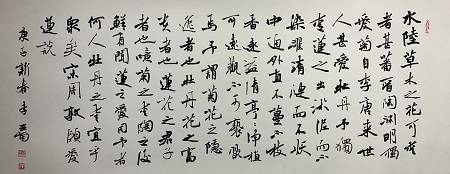 水陸草木之花可愛
者甚蕃晉陶淵明獨
愛菊自李唐來世
人甚愛牡丹予獨
愛蓮之出淤泥而不
染濯清漣而不妖
中通外直不蔓不枝
香遠益清亭亭淨植
可遠觀而不可褻玩
焉予謂菊花之隱
逸者也牡丹花之富
貴者也蓮花之君子
者也噫菊之愛陶之後
鮮有聞蓮之愛同予者
何人牡丹之愛宜乎
衆矣宋周敦頤愛
蓮説
庚子新春李